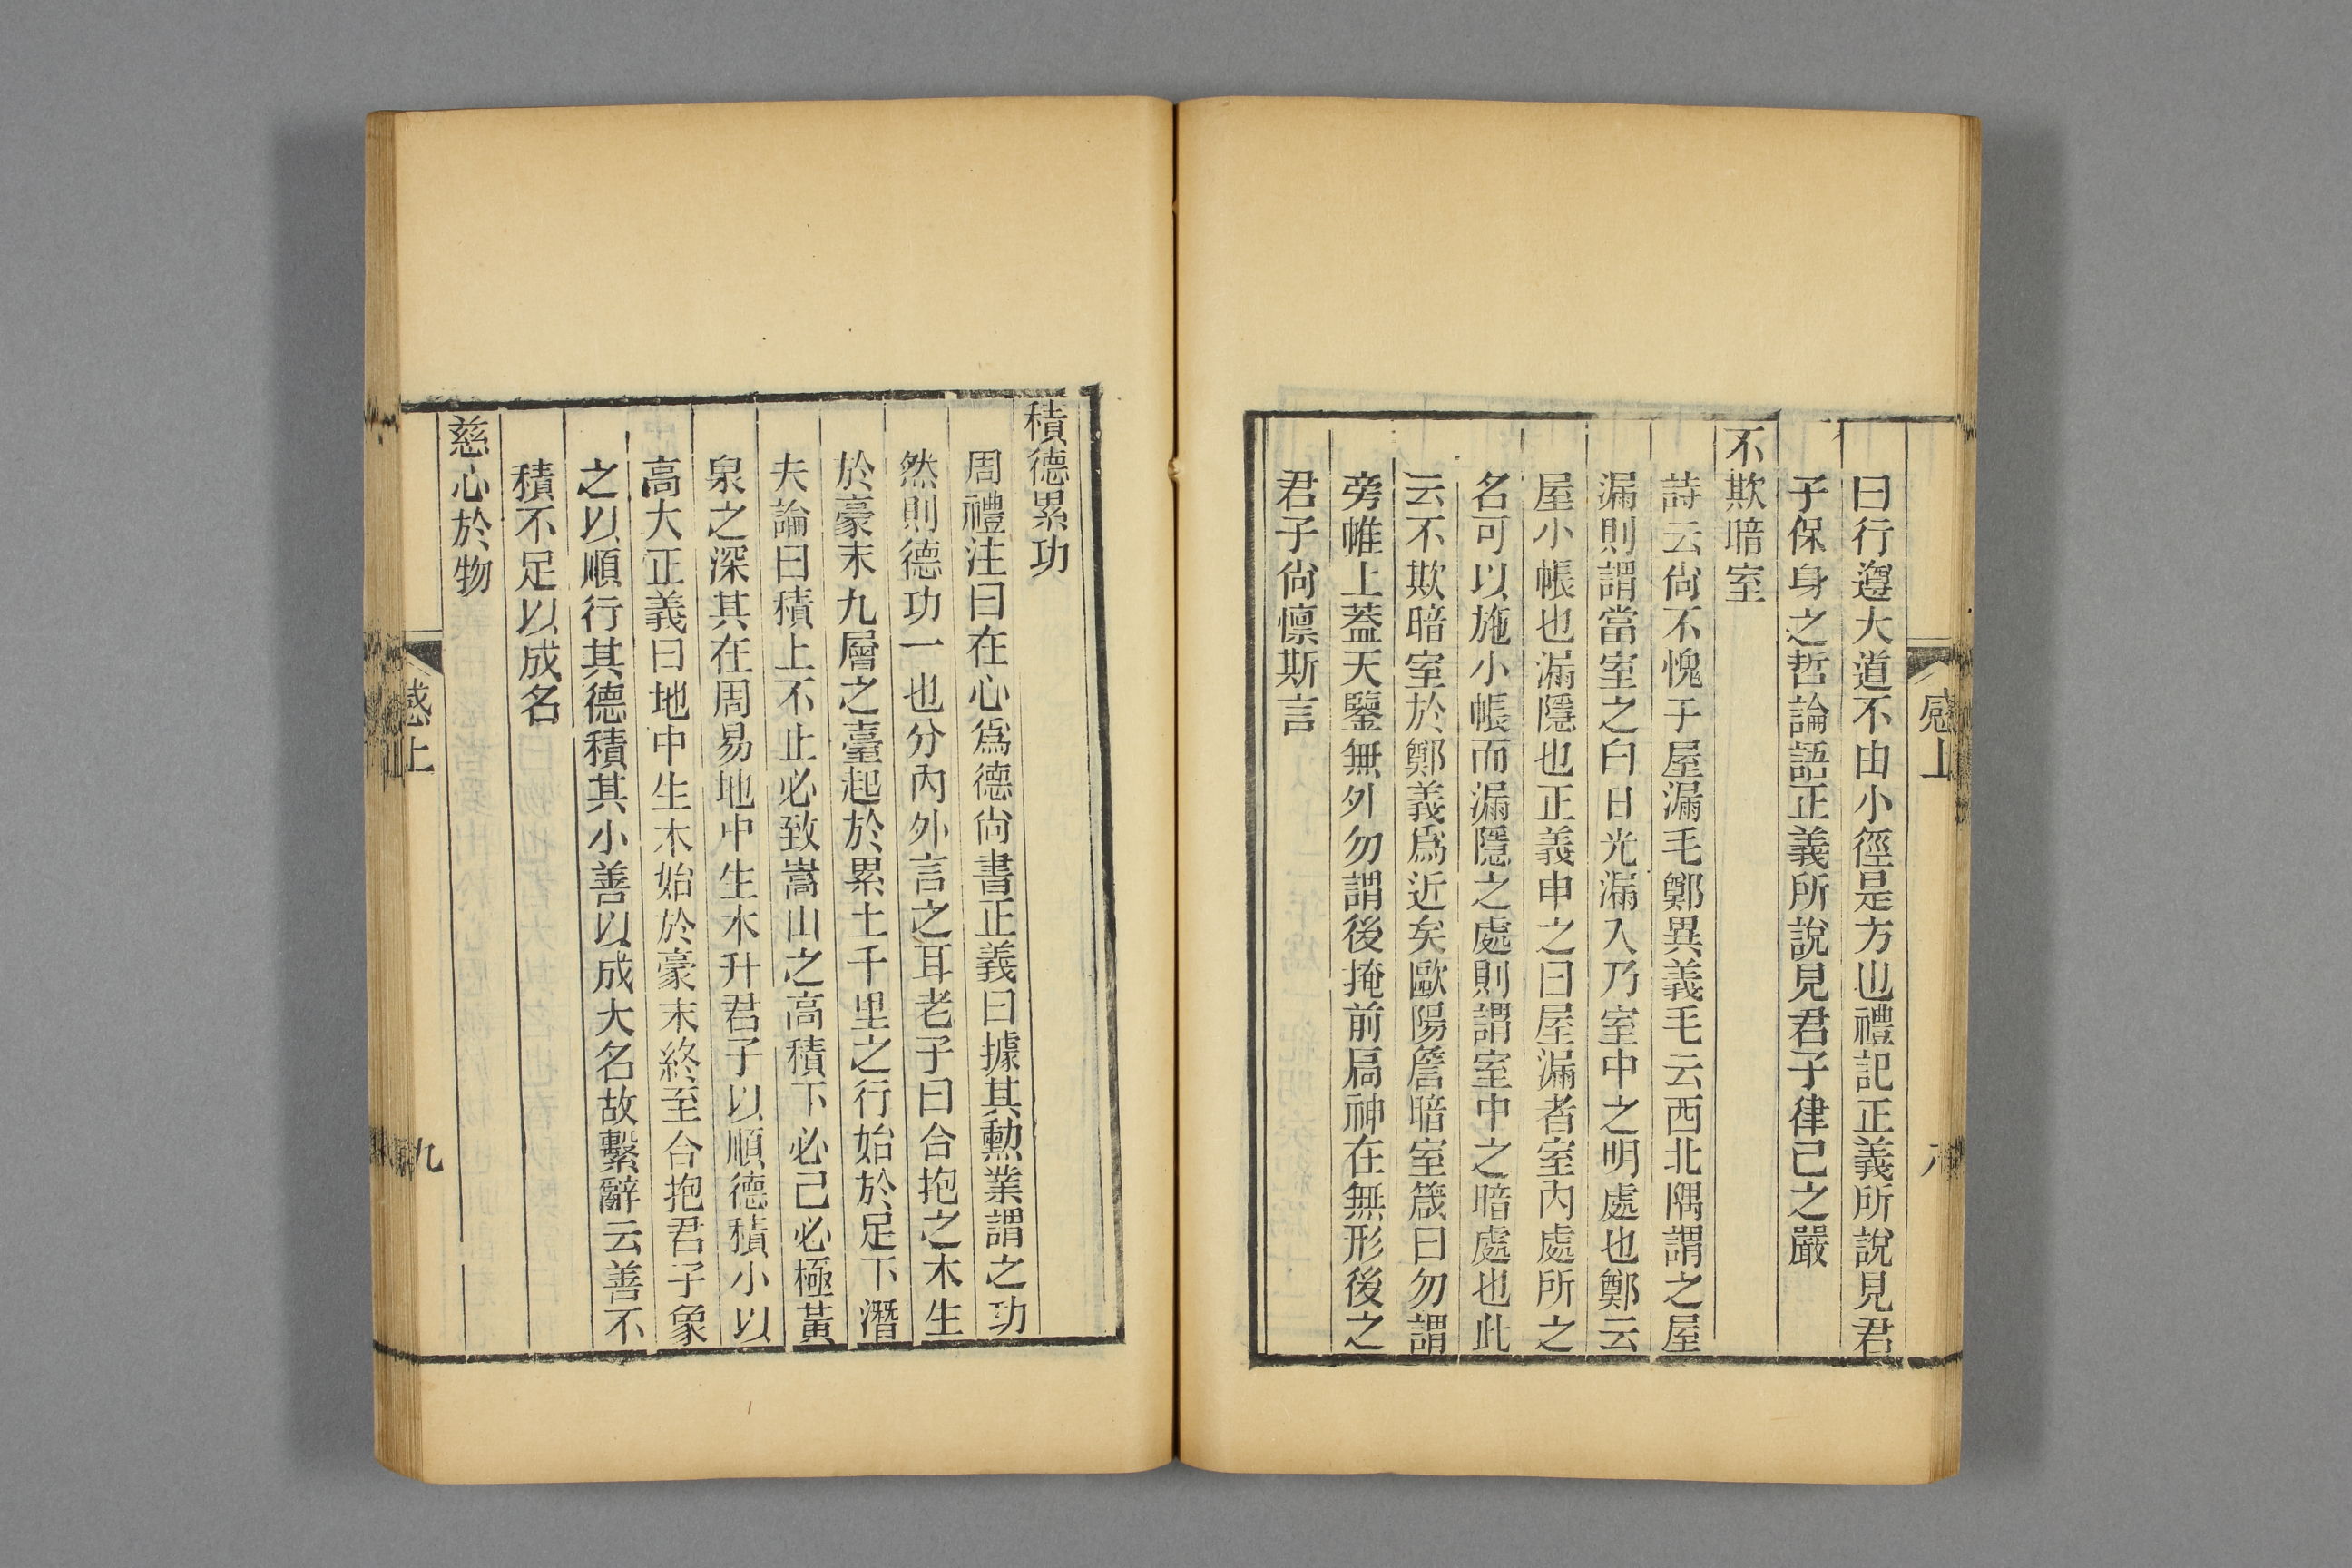 感上
曰行遵大道不由小徑是方也禮記正義所說見君
子保身之哲論語正義所說見君子律己之嚴
不欺暗室
詩云尙不愧于屋漏毛鄭異義毛云西北隅謂之屋
漏則謂當室之白日光漏入乃室中之明處也鄭云
屋小帳也漏隱也正義申之曰屋漏者室內處所之
名可以施小帳而漏隱之處則謂室中之暗處也此
云不欺暗室於鄭義爲近矣歐陽詹暗室箴曰勿謂
旁帷上葢天鑒無外勿謂後掩前扃神在無形後之
君子尙懍斯言
積德累功
周禮注曰在心爲德尙書正義曰據其勲業謂之功
然則德功一也分內外言之耳老子曰合抱之木生
於豪末九層之臺起於累土千里之行始於足下潛
夫論曰積上不止必致嵩山之高積下必己必極黃
泉之深其在周易地中生木升君子以順德積小以
高大正義曰地中生木始於豪末終至合抱君子象
之以順行其德積其小善以成大名故繫辭云善不
積不足以成名
慈心於物
感上
九